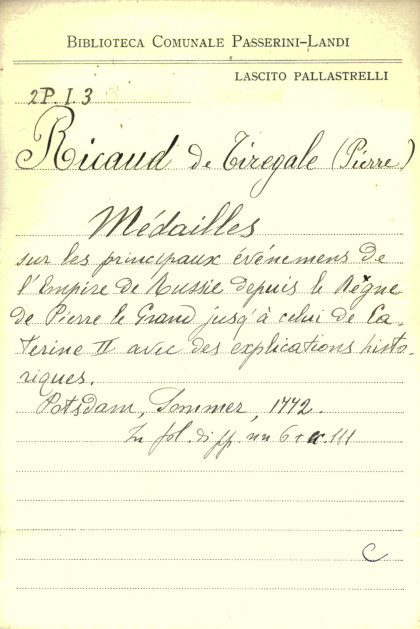 BIBLIOTECA COMUNALE PASSERINI-LANDI
LASCITO PALLASTRELLI
2P. I. 3
Ricaud de Tiregale (Pierre)
Médailles
sur les principaux événemens de
l'Empire de Russie depuis le Règne
de Pierre le Grand jusq'à celui de Ca-
terine II avec des explications histo-
riques.
Potsdam, Sommer, 1772.
In fol. di pp. nn 6 + c. 111
C